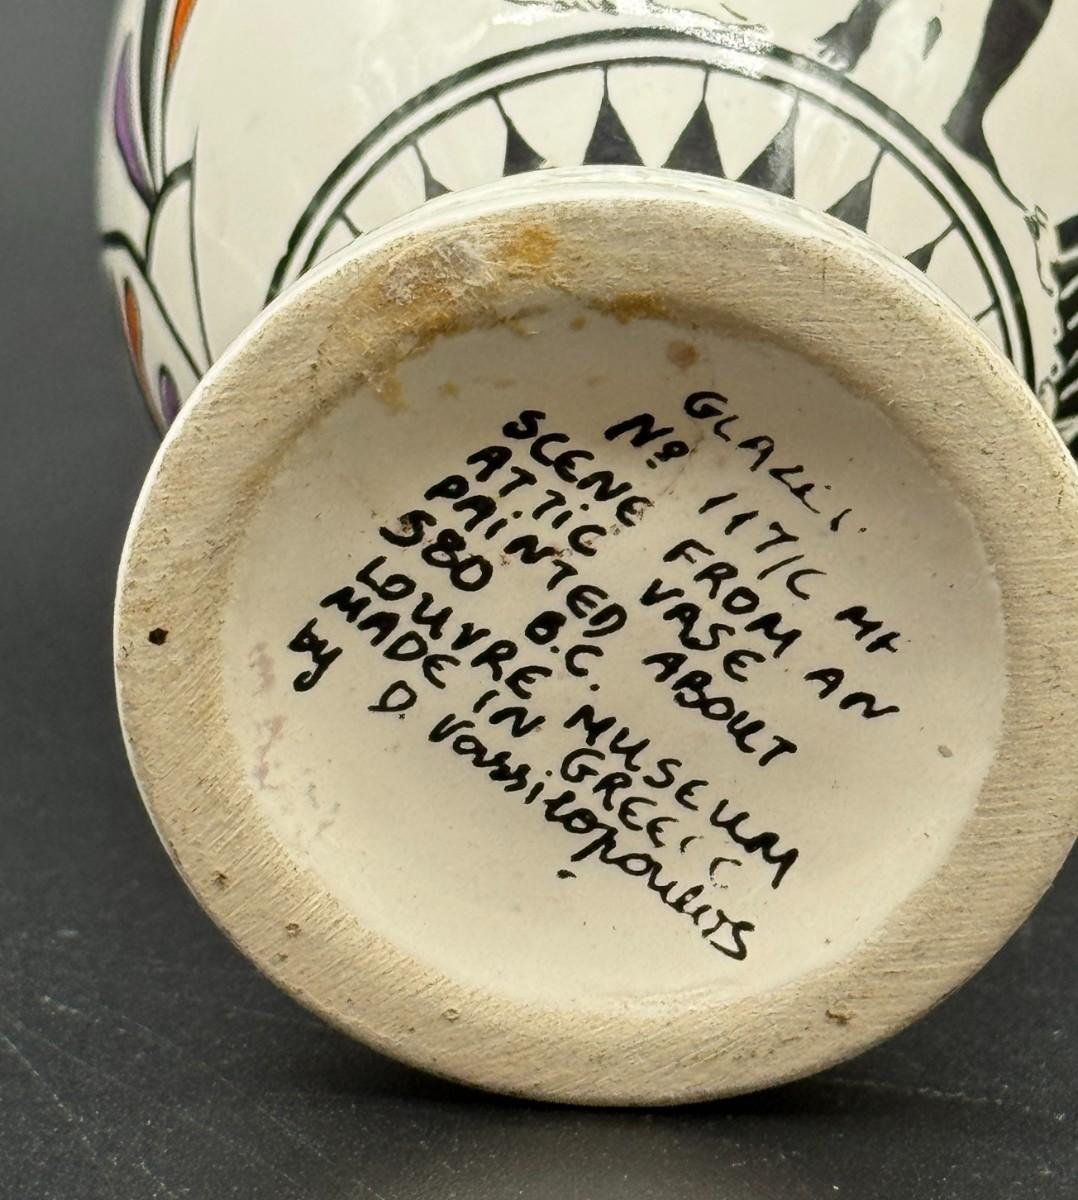 No 117/C MY
SCENE FROM AN
ATTIC VASE
PAiNTED ABOUT
580 B.C.
LOUVRE. MUSEUM
MADE IN GREECE
by D. Vassilopoulos